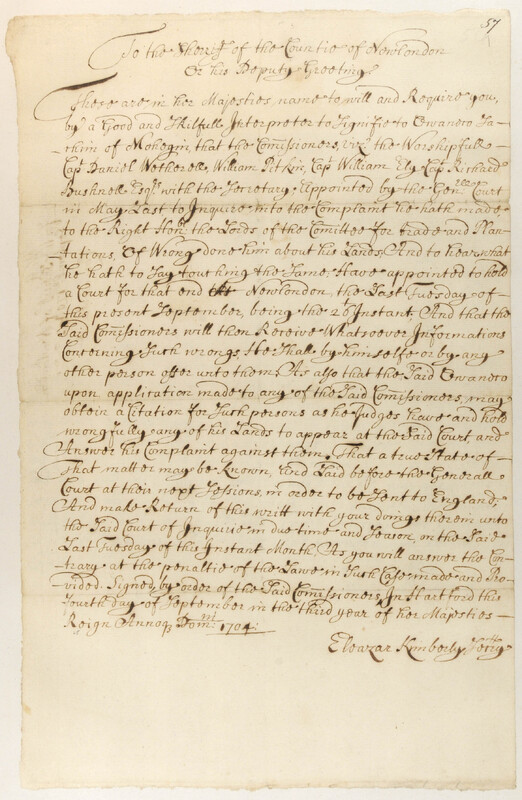 57
To the Sheriff of the Countie of Newlondon
Or his Deputy Greeting
These are in her Majesties name to will and Require you,
by a Good and skilfull Interpreter to signifie to Owaneco Sa-
chim of Mohegin, that the Comissioners, viz the Worshipfull
Capt Daniel Wetherell, William Pitkin, Capt William Ely Capt Richard
Bushnell Esqrs with the Secretary, Appointed by the Genll Court
in May Last to Inquire into the Complaint he hath made,
to the Right Honble the Lords of the Comittee for trade and Plan-
tations, Of Wrong done him about his Lands, And to hear what
he hath to say touching the same, Have appointed to hold
a Court for that end At Newlondon, the Last Tuesday of
this present September, being the 26 Instant. And that the
said Comissioners will then Receive Whatsoever Informations
Concerning such wrongs, He shall by himselfe or by any
other person offer unto them, As also that the said Owaneco
upon application made to any of the said Comissioners, may
obtein a Citation for such persons as he Judges have and hold
wrongfully any of his Lands to appear at the said Court and
Answer his Complaint against them, That a true State of
That matter may be Known, And Laid before the Generall
Court at their next Sessions, in order to be sent to England,
And make Return of this writt with your doings therein unto
the said Court of Inquirie in due time and Season, on the said
Last Tuesday of this Instant Month. As you will answer the Con-
trary at the penaltie of the Lawe in such Case made and Pro-
vided. Signed by order of the said Comissioners, In Hartford this
Fourth day of September in the third year of her Majesties
Reign Annoq Domni 1704:
Eleazar Kimberly Secry